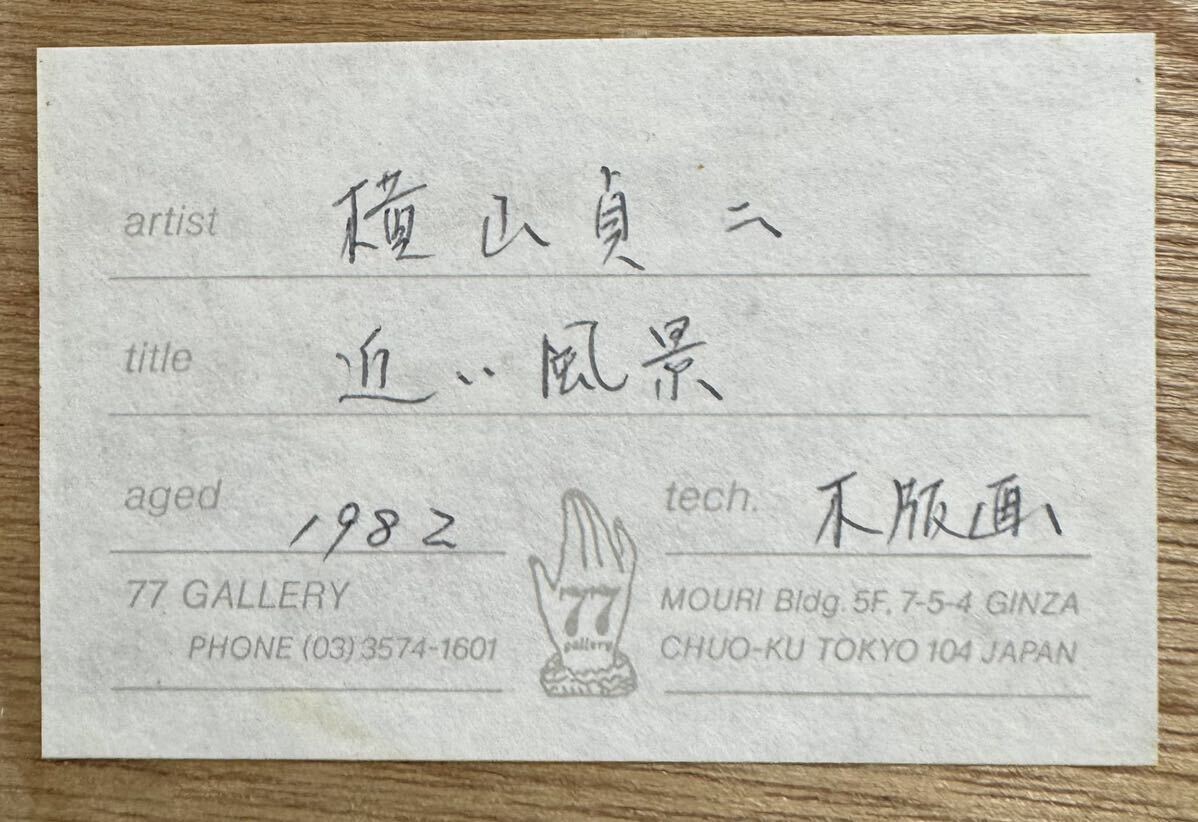 artist 横山貞二
title 近い風景
aged 1982
tech. 木版画
77 GALLERY
PHONE (03) 3574-1601
77
gallery
MOURI Bldg. 5F, 7-5-4 GINZA
CHUO-KU TOKYO 104 JAPAN